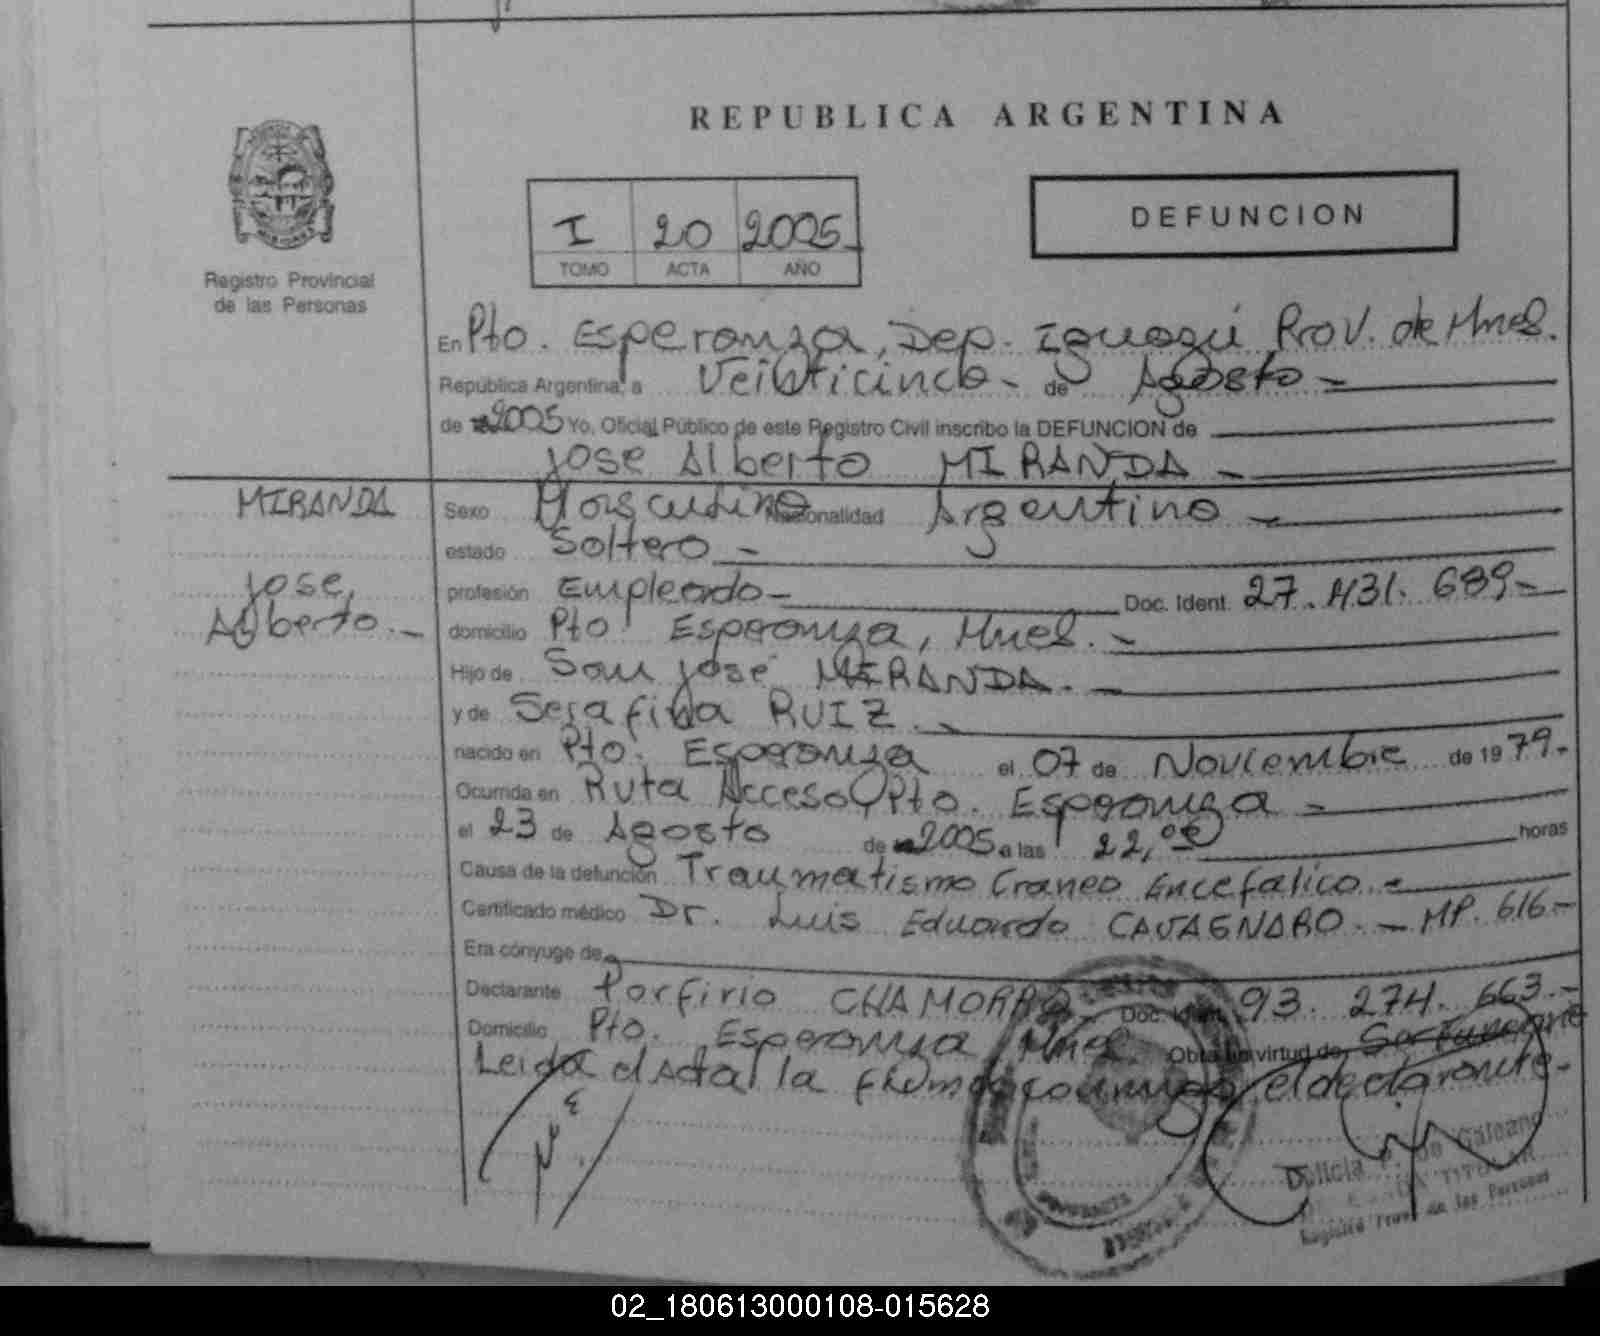 REPUBLICA ARGENTINA
I 20 2005
TOMO ACTA AÑO
DEFUNCION
Registro Provincial
de las Personas
En Pto. Esperanza, Dep. Iguazú Prov. de Mnes.
República Argentina, a Veinticinco - de Agosto -
de 2005 Yo, Oficial Público de este Registro Civil inscribo la DEFUNCION de
Jose Alberto MIRANDA -
MIRANDA
Jose,
Alberto. -
Sexo Masculino Nacionalidad Argentino -
estado Soltero -
profesión Empleado - Doc. Ident. 27.431.689-
domicilio Pto. Esperanza, Mnes. -
Hijo de San José MIRANDA. -
y de Serafina RUIZ. -
nacido en Pto. Esperanza el 07 de Noviembre de 1979.-
Ocurrida en Ruta Acceso Pto. Esperanza -
el 23 de Agosto de 2005 a las 22,00 horas
Causa de la defunción Traumatismo Craneo Encefalico. -
Certificado médico Dr. Luis Eduardo CAVAGNARO. - MP. 616.-
Era cónyuge de
Declarante Porfirio CHAMORRO - Doc. Ident. 93.274.663.-
Domicilio Pto. Esperanza, Mnes. Obra en virtud de
Leida el Acta la firma conmigo el declarante.-
de Galeano
TITULAR
Registro Prov. de las Personas
02_180613000108-015628